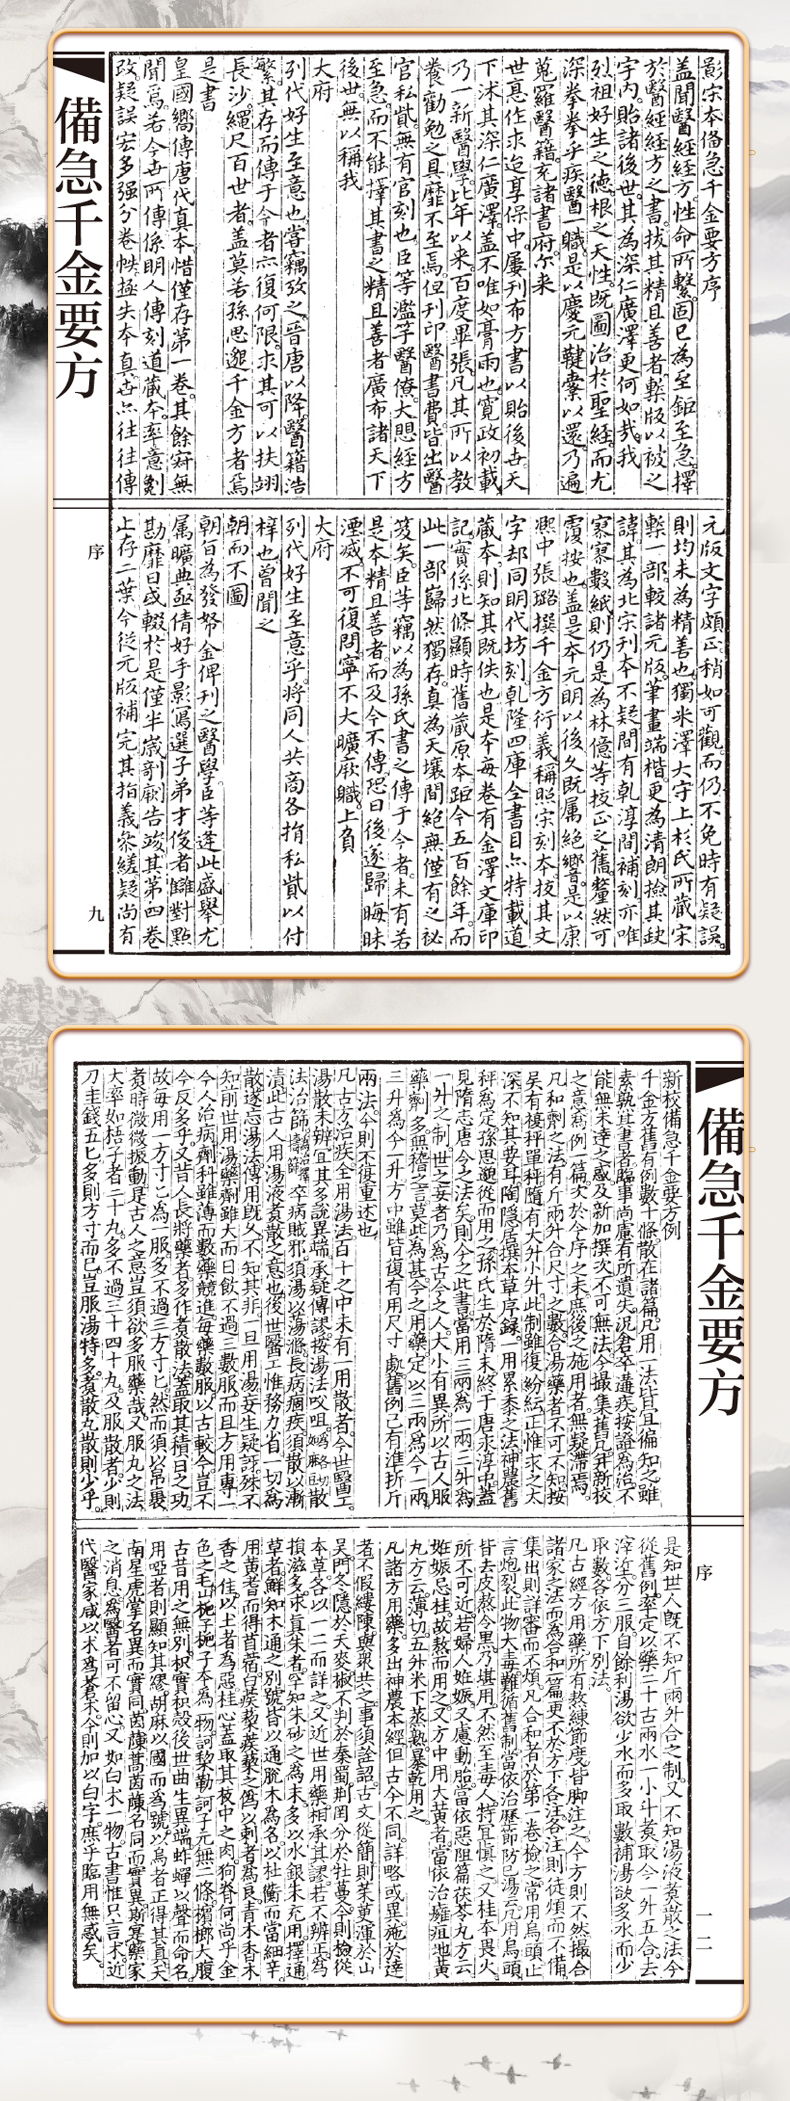 備急千金要方
序
九
影宋本備急千金要方序
蓋聞醫經經方性命所繫固已為至鉅至急擇
於醫經經方之書拔其精且善者槧版以被之
宇內貽諸後世其為深仁廣澤更何如哉我
烈祖好生之德根之天性既圖治於聖經而尤
深拳拳乎疾醫一職是以慶元鞬櫜以還乃遍
蒐羅醫籍充諸書府爾來
世意作求迨享保中屢刊布方書以貽後世天
下沐其深仁廣澤蓋不唯如膏雨也寬政初載
乃一新醫學比年以來百度畢張凡其所以教
養勸勉之具靡不至焉但刊印醫書費皆出醫
官私貲無有官刻也臣等濫竽醫僚大懼經方
至急而不能擇其書之精且善者廣布諸天下
後世無以稱我
大府
列代好生至意也嘗竊攷之晉唐以降醫籍浩
繁其存而傳于今者亦復何限求其可以扶翊
長沙繩尺百世者蓋莫若孫思邈千金方者焉
是書
皇國嚮傳唐代真本惜僅存第一卷其餘寂無
聞焉若今世所傳係明人傳刻道藏本率意劖
改疑誤宏多强分卷帙極失本真世亦往往傳
元版文字頗正稍如可觀而仍不免時有疑誤
則均未為精善也獨米澤大守上杉氏所藏宋
槧一部較諸元版筆畫端楷更為清朗撿其缺
諱其為北宋刊本不疑間有乾淳間補刻亦唯
寥寥數紙則仍是為林億等校正之舊釐然可
覆按也蓋是本元明以後久既属絕響是以康
熙中張璐撰千金方衍義稱照宋刻本校其文
字却同明代坊刻乾隆四庫全書目亦特載道
藏本則知其既佚也是本每卷有金澤文庫印
記實係北條顯時舊藏原本距今五百餘年而
此一部巋然獨存真為天壤間絕無僅有之祕
笈矣臣等竊以為孫氏書之傳于今者未有若
是本精且善者而及今不傳恐日後遂歸晦昧
湮滅不可復問寧不大曠厥職上負
大府
列代好生至意乎將同人共商各捐私貲以付
梓也曾聞之
朝而不圖
朝旨為發帑金俾刊之醫學臣等逢此盛舉尤
属曠典亟倩好手影寫選子弟才俊者雠對點
勘靡日或輟於是僅半歲剞厥告竣其第四卷
上存二葉今從元版補完其指義參縒疑尚有
備急千金要方
序
一二
新校備急千金要方例
千金方舊有例數十條散在諸篇凡用一法皆宜徧知之雖
素熟其書者臨事尚慮有所遺失況倉卒遘疾按證為治不
能無未達之惑及新加撰次不可無法今撮集舊凡并新校
之意為例一篇次於今序之末庶後之施用者無疑滯焉
凡和劑之法有斤兩升合尺寸之數合湯藥者不可不知按
吳有複秤單秤隋有大升小升此制雖復紛紜正惟求之太
深不知其要耳陶隱居撰本草序錄一用累黍之法神農舊
秤為定孫思邈從而用之孫氏生於隋末終于唐永淳中蓋
見隋志唐令之法矣則今之此書當用三兩為一兩三升為
一升之制世之妄者乃為古今之人大小有異所以古人服
藥劑多無稽之言莫此為甚今之用藥定以三兩為今一兩
三升為今一升方中雖皆復有用尺寸處舊例已有準折斤
兩法今則不復重述也
凡古方治疾全用湯法百十之中未有一用散者今世醫工
湯散未辨宜其多說異端承疑傳謬按湯法㕮咀散
法治篩卒病賊邪須湯以蕩滌長病痼疾須散以漸
漬此古人用湯液煑散之意也後世醫工惟務力省一切為
散遂忘湯法傳用既久不知其非一旦用湯妄生疑訝殊不
知前世用湯藥劑雖大而日飲不過三數服而且方用專一
今人治病劑料雖薄而數藥競進每藥數服以古較今豈不
今反多乎又昔人長將藥者多作煑散法蓋取其積日之功
故每用一方寸匕為一服多不過三方寸匕然而須以帛裹
煑時微微振動是古人之意豈須欲多服藥哉又服丸之法
大率如梧子者二十丸多不過三十四十丸及服散者少則
刀圭錢五匕多則方寸而已豈服湯特多煑散丸散則少乎
是知世人既不知斤兩升合之制又不知湯液煑散之法今
從舊例率定以藥二十古兩水一小斗煑取今一升五合去
滓垽分三服自餘利湯欲少水而多取數補湯欲多水而少
取數各依方下別法
凡古經方用藥所有熬練節度皆脚注之今方則不然撮合
諸家之法而為合和一篇更不於方下各注各注則徒煩而不備
集出則詳審而不煩凡合和者於第一卷檢之常用烏頭止
言炮裂此物大毒難循舊制當依治歷節防已湯云凡用烏頭
皆去皮熬令黑乃堪用不然至毒人特宜慎之又桂本畏火
所不可近若婦人姙娠又慮動胎當依惡阻篇茯苓丸方云
姙娠忌桂故熬而用之又方中用大黃者當依治癰疽地黃
丸方云薄切五升米下蒸熟暴乾用之
凡諸方用藥多出神農本經但古今不同詳略或異施於達
者不假縷陳與眾共之事須詮詔古文從簡則茱萸渾於山
吳門冬隱於天麥椒不判於秦蜀荆罔分於牡蔓今則檢從
本草各以一二而詳之又近世用藥相承其謬若不辨正為
損滋多求真朱者罕知朱砂之為末多以水銀朱充用擇通
草者鮮知木通之別號皆以通脫木為名以杜蘅而當細辛
用黃耆而得苜蓿白蒺藜蒺藜之僞以刺者為良青木香木
香之佳以土者為惡桂心蓋取其枝中之肉狗脊何尚乎金
色之毛山梔子梔子本為一物訶棃勒訶子元無二條檳榔大腹
古昔用之無別枳實枳殼後世曲生異端蚱蟬以聲而命名
用啞者則顯知其謬胡麻以國而為號以烏者正得其真天
南星虎掌名異而實同茵蔯蒿茵蔯名同而實異斯實藥家
之消息為醫者可不留心又如白术一物古書惟只言术近
代醫家咸以术為蒼术今則加以白字庶乎臨用無惑矣